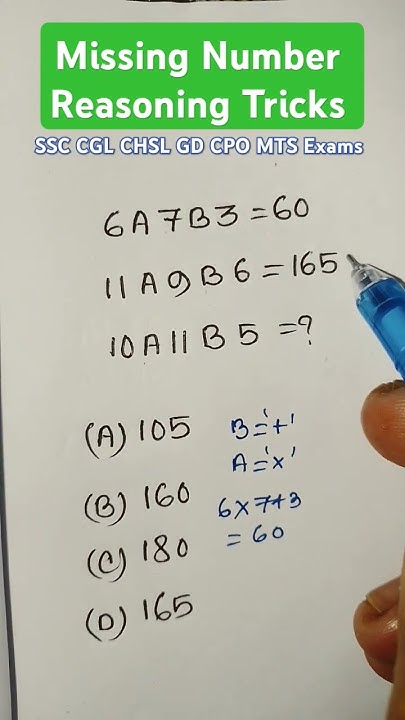 Missing Number
Reasoning Tricks
SSC CGL CHSL GD CPO MTS Exams
6A7B3=60
11A9B6=165
10A11B5=?
(A) 105
(B) 160
(C) 180
(D) 165
B='+'
A='x'
6x7+3
=60